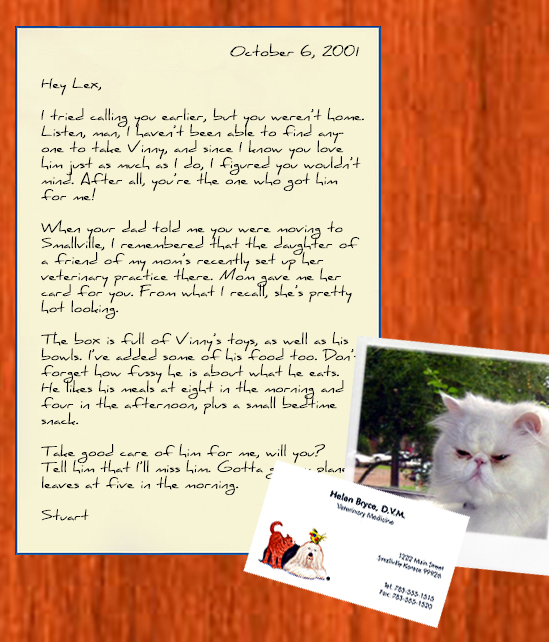 October 6, 2001
Hey Lex,
I tried calling you earlier, but you weren't home.
Listen, man, I haven't been able to find any-
one to take Vinny, and since I know you love
him just as much as I do, I figured you wouldn't
mind. After all, you're the one who got him
for me!
When your dad told me you were moving to
Smallville, I remembered that the daughter of
a friend of my mom's recently set up her
veterinary practice there. Mom gave me her
card for you. From what I recall, she's pretty
hot looking.
The box is full of Vinny's toys, as well as his
bowls. I've added some of his food too. Don't
forget how fussy he is about what he eats.
He likes his meals at eight in the morning and
four in the afternoon, plus a small bedtime
snack.
Take good care of him for me, will you?
Tell him that I'll miss him. Gotta plane
leaves at five in the morning.
Stuart
Helen Bryce, D.V.M.
Veterinary Medicine
1222 Main Street
Smallville Kansas 99928
Tel: 785-555-1515
Fax: 785-555-1520